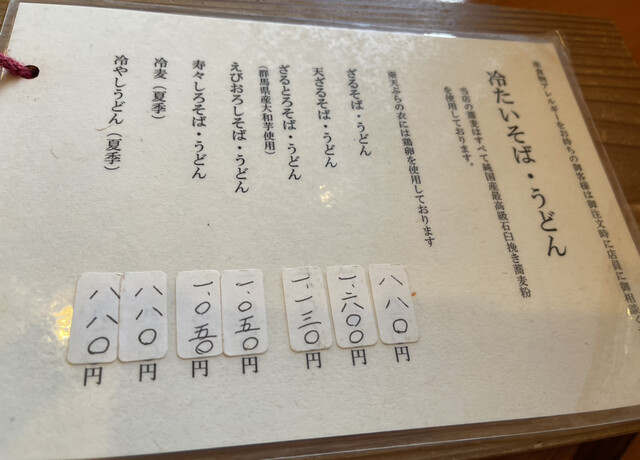 ※食物アレルギーをお持ちの御客様は御注文時に店員に御相談く
冷たいそば・うどん
当店の蕎麦はすべて純国産最高級石臼挽き蕎麦粉
を使用しております。
※天ぷらの衣には鶏卵を使用しております
ざるそば・うどん 八八〇円
天ざるそば・うどん 一、六〇〇円
ざるとろそば・うどん 一、一三〇円
(群馬県産大和芋使用)
えびおろしそば・うどん 一、〇五〇円
寿々しろそば・うどん 一、〇五〇円
冷麦(夏季) 八八〇円
冷やしうどん(夏季) 八八〇円